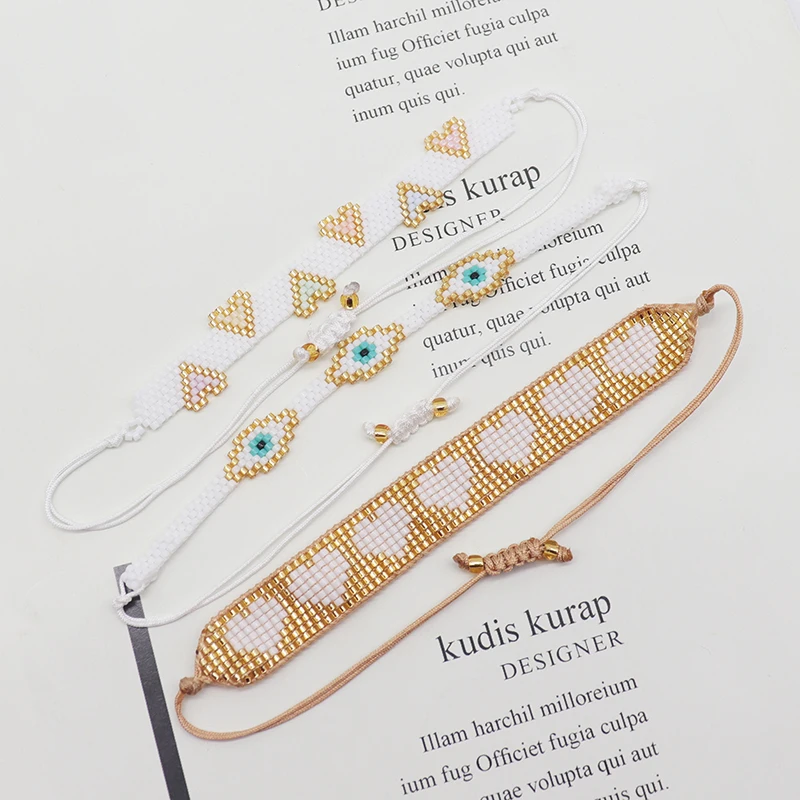 DES
Illam harchil milloreium
ium fug Officiet fugia culpa
quatur, quae volupta qui aut
inum quis qui.
kurap
DESIGNER
milloreium
Officiet fugia culpa
quatur, quae volupta qui aut
inum quis qui.
kudis kurap
DESIGNER
Illam harchil milloreium
ium fug Officiet fugia culpa
quatur, quae volupta qui aut
inum quis qui.